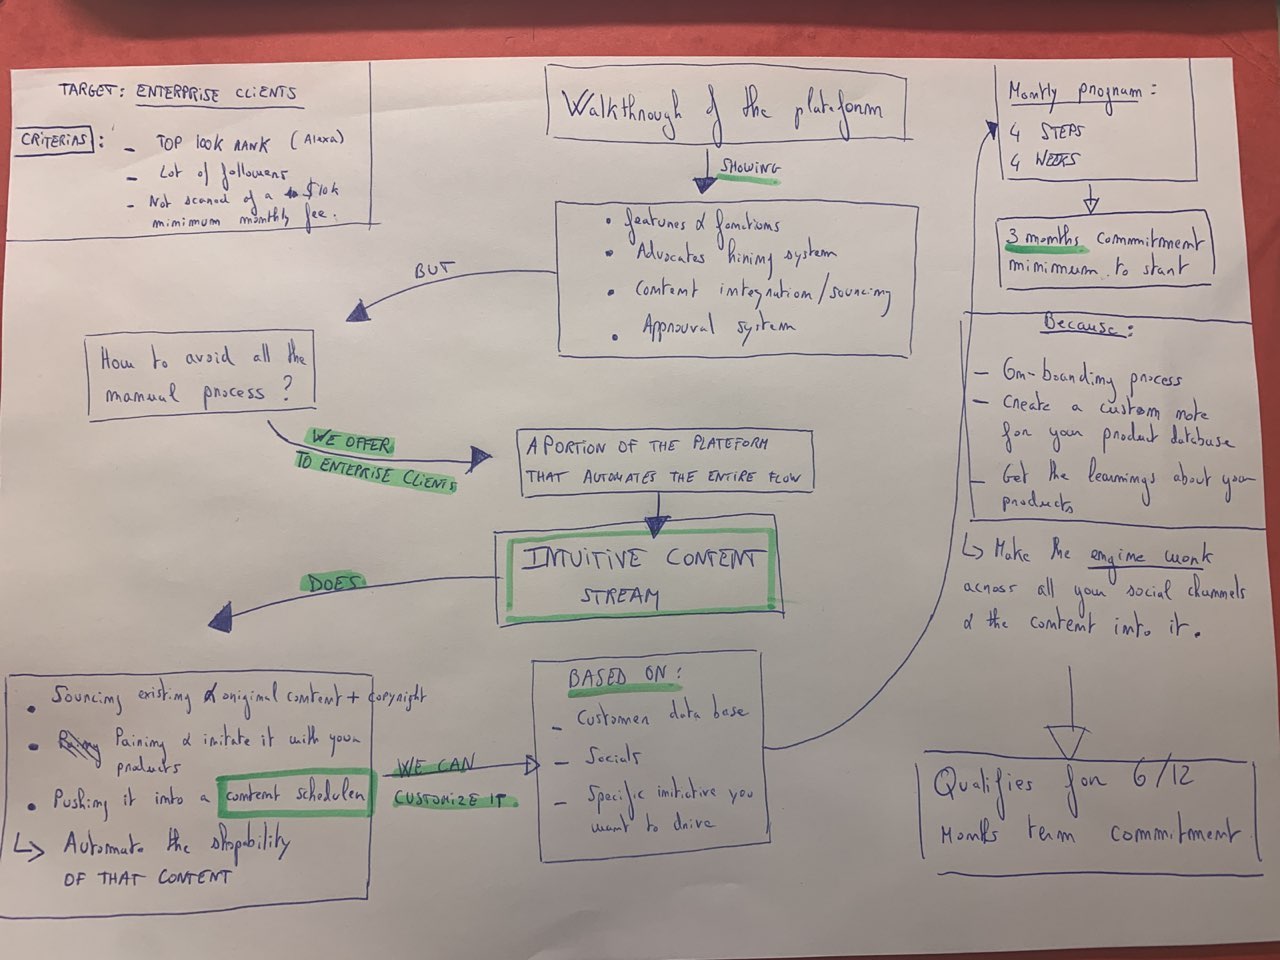 TARGET: ENTERPRISE CLIENTS
CRITERIAS :
- TOP 100K RANK (Alexa)
- Lot of followers
- Not scared of a $10k
minimum monthly fee.
Walkthrough of the plateform
SHOWING
• features & fonctions
• Advocates hiring system
• Content integration/sourcing
• Approuval system
BUT
How to avoid all the
manual process ?
WE OFFER
TO ENTEPRISE CLIENTS
A PORTION OF THE PLATEFORM
THAT AUTOMATES THE ENTIRE FLOW
INTUITIVE CONTENT
STREAM
DOES
• Sourcing existing & original content + copyright
• Pairing & imitate it with your
products
• Pushing it into a content scheduler
↳ Automate the shopability
OF THAT CONTENT
WE CAN
CUSTOMIZE IT.
BASED ON:
- Customer data base
- Socials
- Specific initiative you
want to drive
Montly program:
4 STEPS
4 WEEKS
3 months commitment
minimum to start
Because:
- On-boarding process
- Create a custom note
for your product database
- Get the learnings about your
products
↳ Make the engine work
across all your social channels
& the content into it.
Qualifies for 6/12
Months term commitment